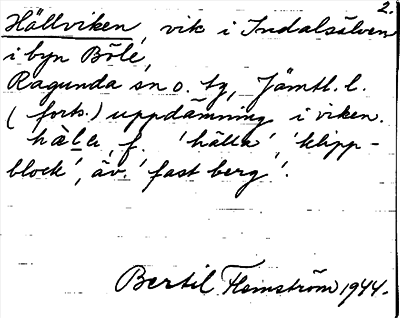 2.
Hällviken, vik i Indalsälven
i byn Böle,
Ragunda sn o. tg, Jämtl. l.
(forts.) uppdämning i viken.
häla, f. 'hälla', 'klipp-
block', äv. 'fast berg'.
Bertil Flemström 1944.